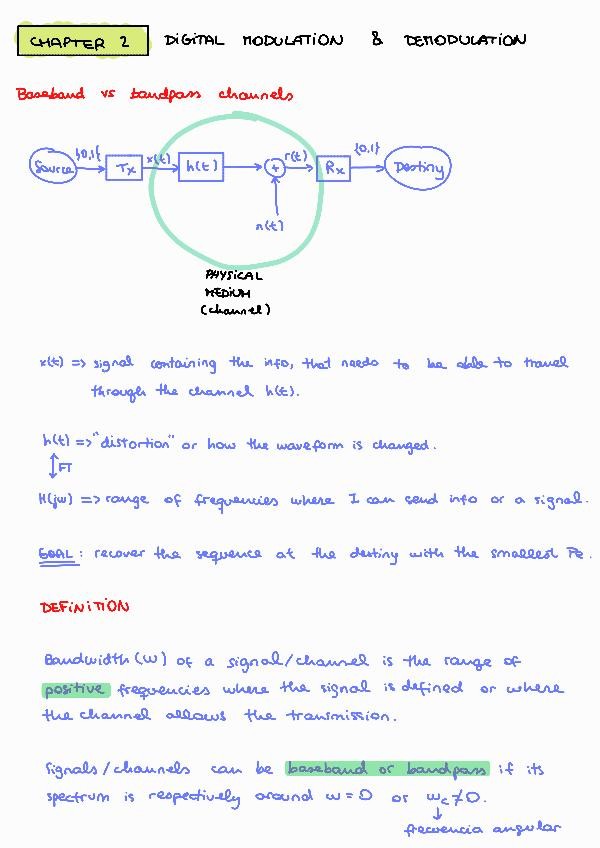 CHAPTER 2 DIGITAL MODULATION & DEMODULATION
Baseband vs bandpass channels
Source {0,1} Tx x(t) h(t) + r(t) Rx {0,1} Destiny
n(t)
PHYSICAL
MEDIUM
(channel)
x(t) => signal containing the info, that needs to be able to travel
through the channel h(t).
h(t) => "distortion" or how the waveform is changed.
↕ FT
H(jw) => range of frequencies where I can send info or a signal.
GOAL: recover the sequence at the destiny with the smallest Pe.
DEFINITION
Bandwidth (W) of a signal/channel is the range of
positive frequencies where the signal is defined or where
the channel allows the transmission.
Signals/channels can be baseband or bandpass if its
spectrum is respectively around w = 0 or wc ≠ 0.
↓
frecuencia angular